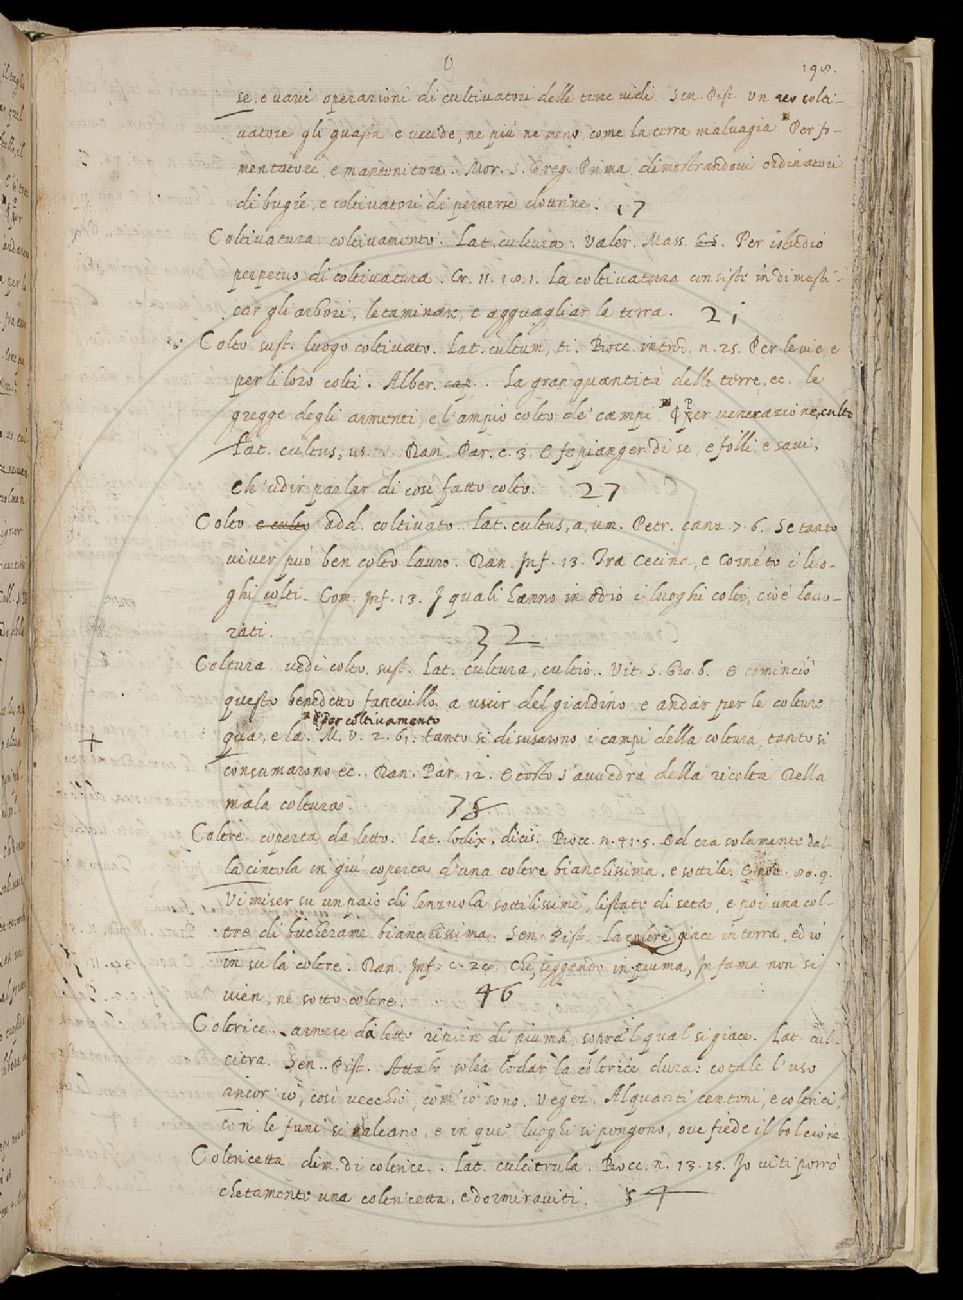 O
198.
se, e varie operazioni di cultivatori delle terre vidi. Sen. Pist. Un reo colti-
vatore gli guasta e uccide, ne più ne meno, come la terra malvagia Per fo-
mentatore, e mantenitore. Mor. S. Greg. Prima, dimostrandovi ordinatori
di bugie, e coltivatori di perverse dottrine. 17
Coltivatura coltivamento. Lat. cultura. Valer. Mass. Per istudio
perpetuo di coltivatura. Cr. 11. 18. 1. La coltivatura consiste in dimesti-
car gli arbori, letaminare, e agguagliar la terra. 21
Colto sust. luogo coltivato. Lat. cultum, ti. Bocc. introd. n. 25. Per le vie e
per li loro colti. Alber. cap. . La gran quantità delle terre, ec. le
gregge degli armenti, e l'ampio colto de' campi Per venerazione, culto
Lat. cultus, us. Dan. Par. c. 3. E fe pianger di se, e folli, e savi,
Ch' udir parlar di così fatto colto. 27
Colto e culto add. coltivato. Lat. cultus, a, um. Petr. canz. 7. 6. Se tanto
viver può ben colto lauro. Dan. Inf. 13. Tra Cecina, e Corneto i luo-
ghi colti. Com. Inf. 13. I quali hanno in odio i luoghi colti, cioè lavo-
rati. 32
Coltura vedi colto, sust. Lat. cultura, cultio. Vit. S. Gio. b. E cominciò
questo benedetto fanciullo a uscir del giardino e andar per le colture
Per coltivamento
qua, e la. M. V. 2. 61. tanto si disusarono i campi della coltura, tanto si
+
consumarono ec. Dan. Par. 12. E tosto s'avvedrà della ricolta Della
mala coltura. 78
Coltre coperta da letto. Lat. lodix, dicis. Bocc. n. 41. 5. Ed era solamente dal-
la cintola in giù coperta d'una coltre bianchissima, e sottile. E nov. 80. 9.
Vi miser su un paio di lenzuola sottilissime, listate di seta, e poi una col-
tre di bucherame bianchissima. Sen. Pist. La coltre giace in terra, ed io
in su la coltre. Dan. Inf. c. 24. Che, seggendo in piuma, In fama non si
vien, ne sotto coltre. 46
Coltrice. arnese da letto ripien di piuma, sopra 'l qual si giace. Lat. cul-
citra. Sen. Pist. Attalo solea lodar la coltrice dura: cotale l'uso
ancor io, così vecchio, com' io sono. Vegez. Alquanti centoni, e coltrici,
con le funi si calcano, e in que' luoghi si pongono, ove fiede il bolcione.
Coltricetta dim. di coltrice. Lat. culcitrula. Bocc. n. 13. 15. Io vi ti porrò
chetamente una coltricetta, e dormiraviti. 54